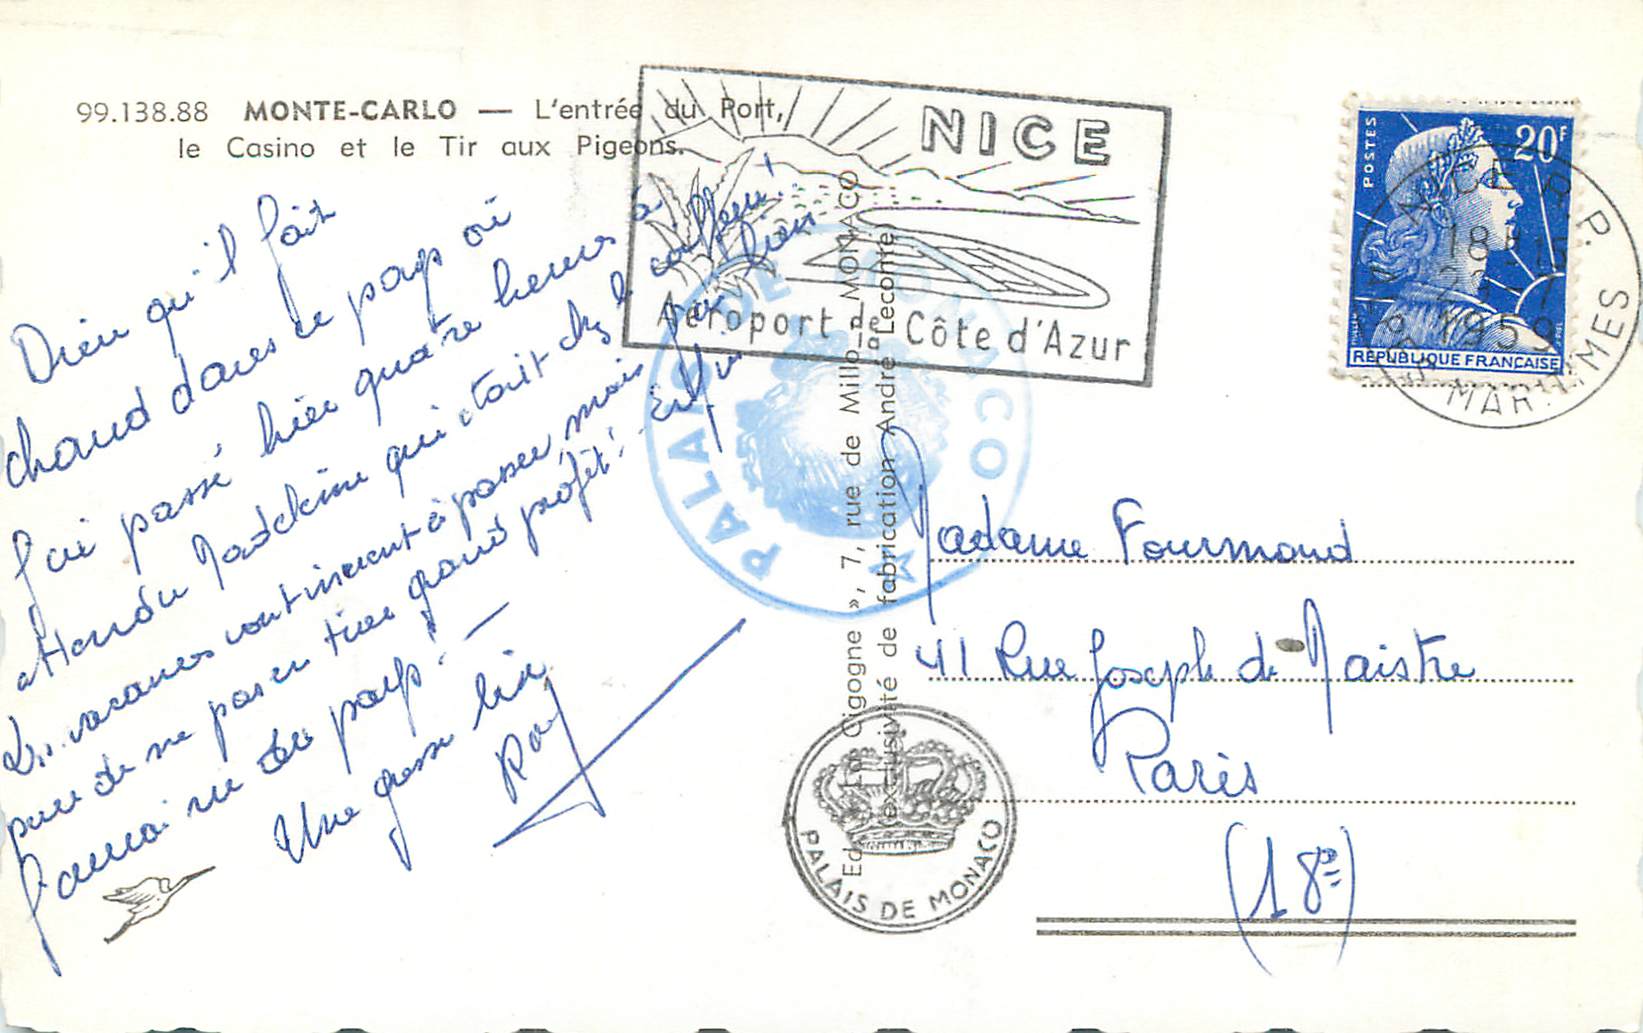 99.138.88 MONTE-CARLO — L'entrée du Port,
le Casino et le Tir aux Pigeons.
Dieu qu'il fait
chaud dans ce pays où
j'ai passé hier quatre heures à
attendre Madeleine qui était chez le coiffeur!
Les vacances continuent à passer, mais
peur de ne pas en tirer grand profit! Enfin
j'aurai vu du pays! —
Une grosse bise
NICE
Aéroport de Côte d'Azur
PALAIS DE MONACO
Cigogne », 7, rue de Millo-MONACO
(exclusivité de fabrication André Leconte)
POSTES
20F
RÉPUBLIQUE FRANÇAISE
NICE R.P.
18H15
1959
ALPES MARITIMES
Madame Fourmond
41 Rue Joseph de Maistre
Paris
(18e)
PALAIS DE MONACO